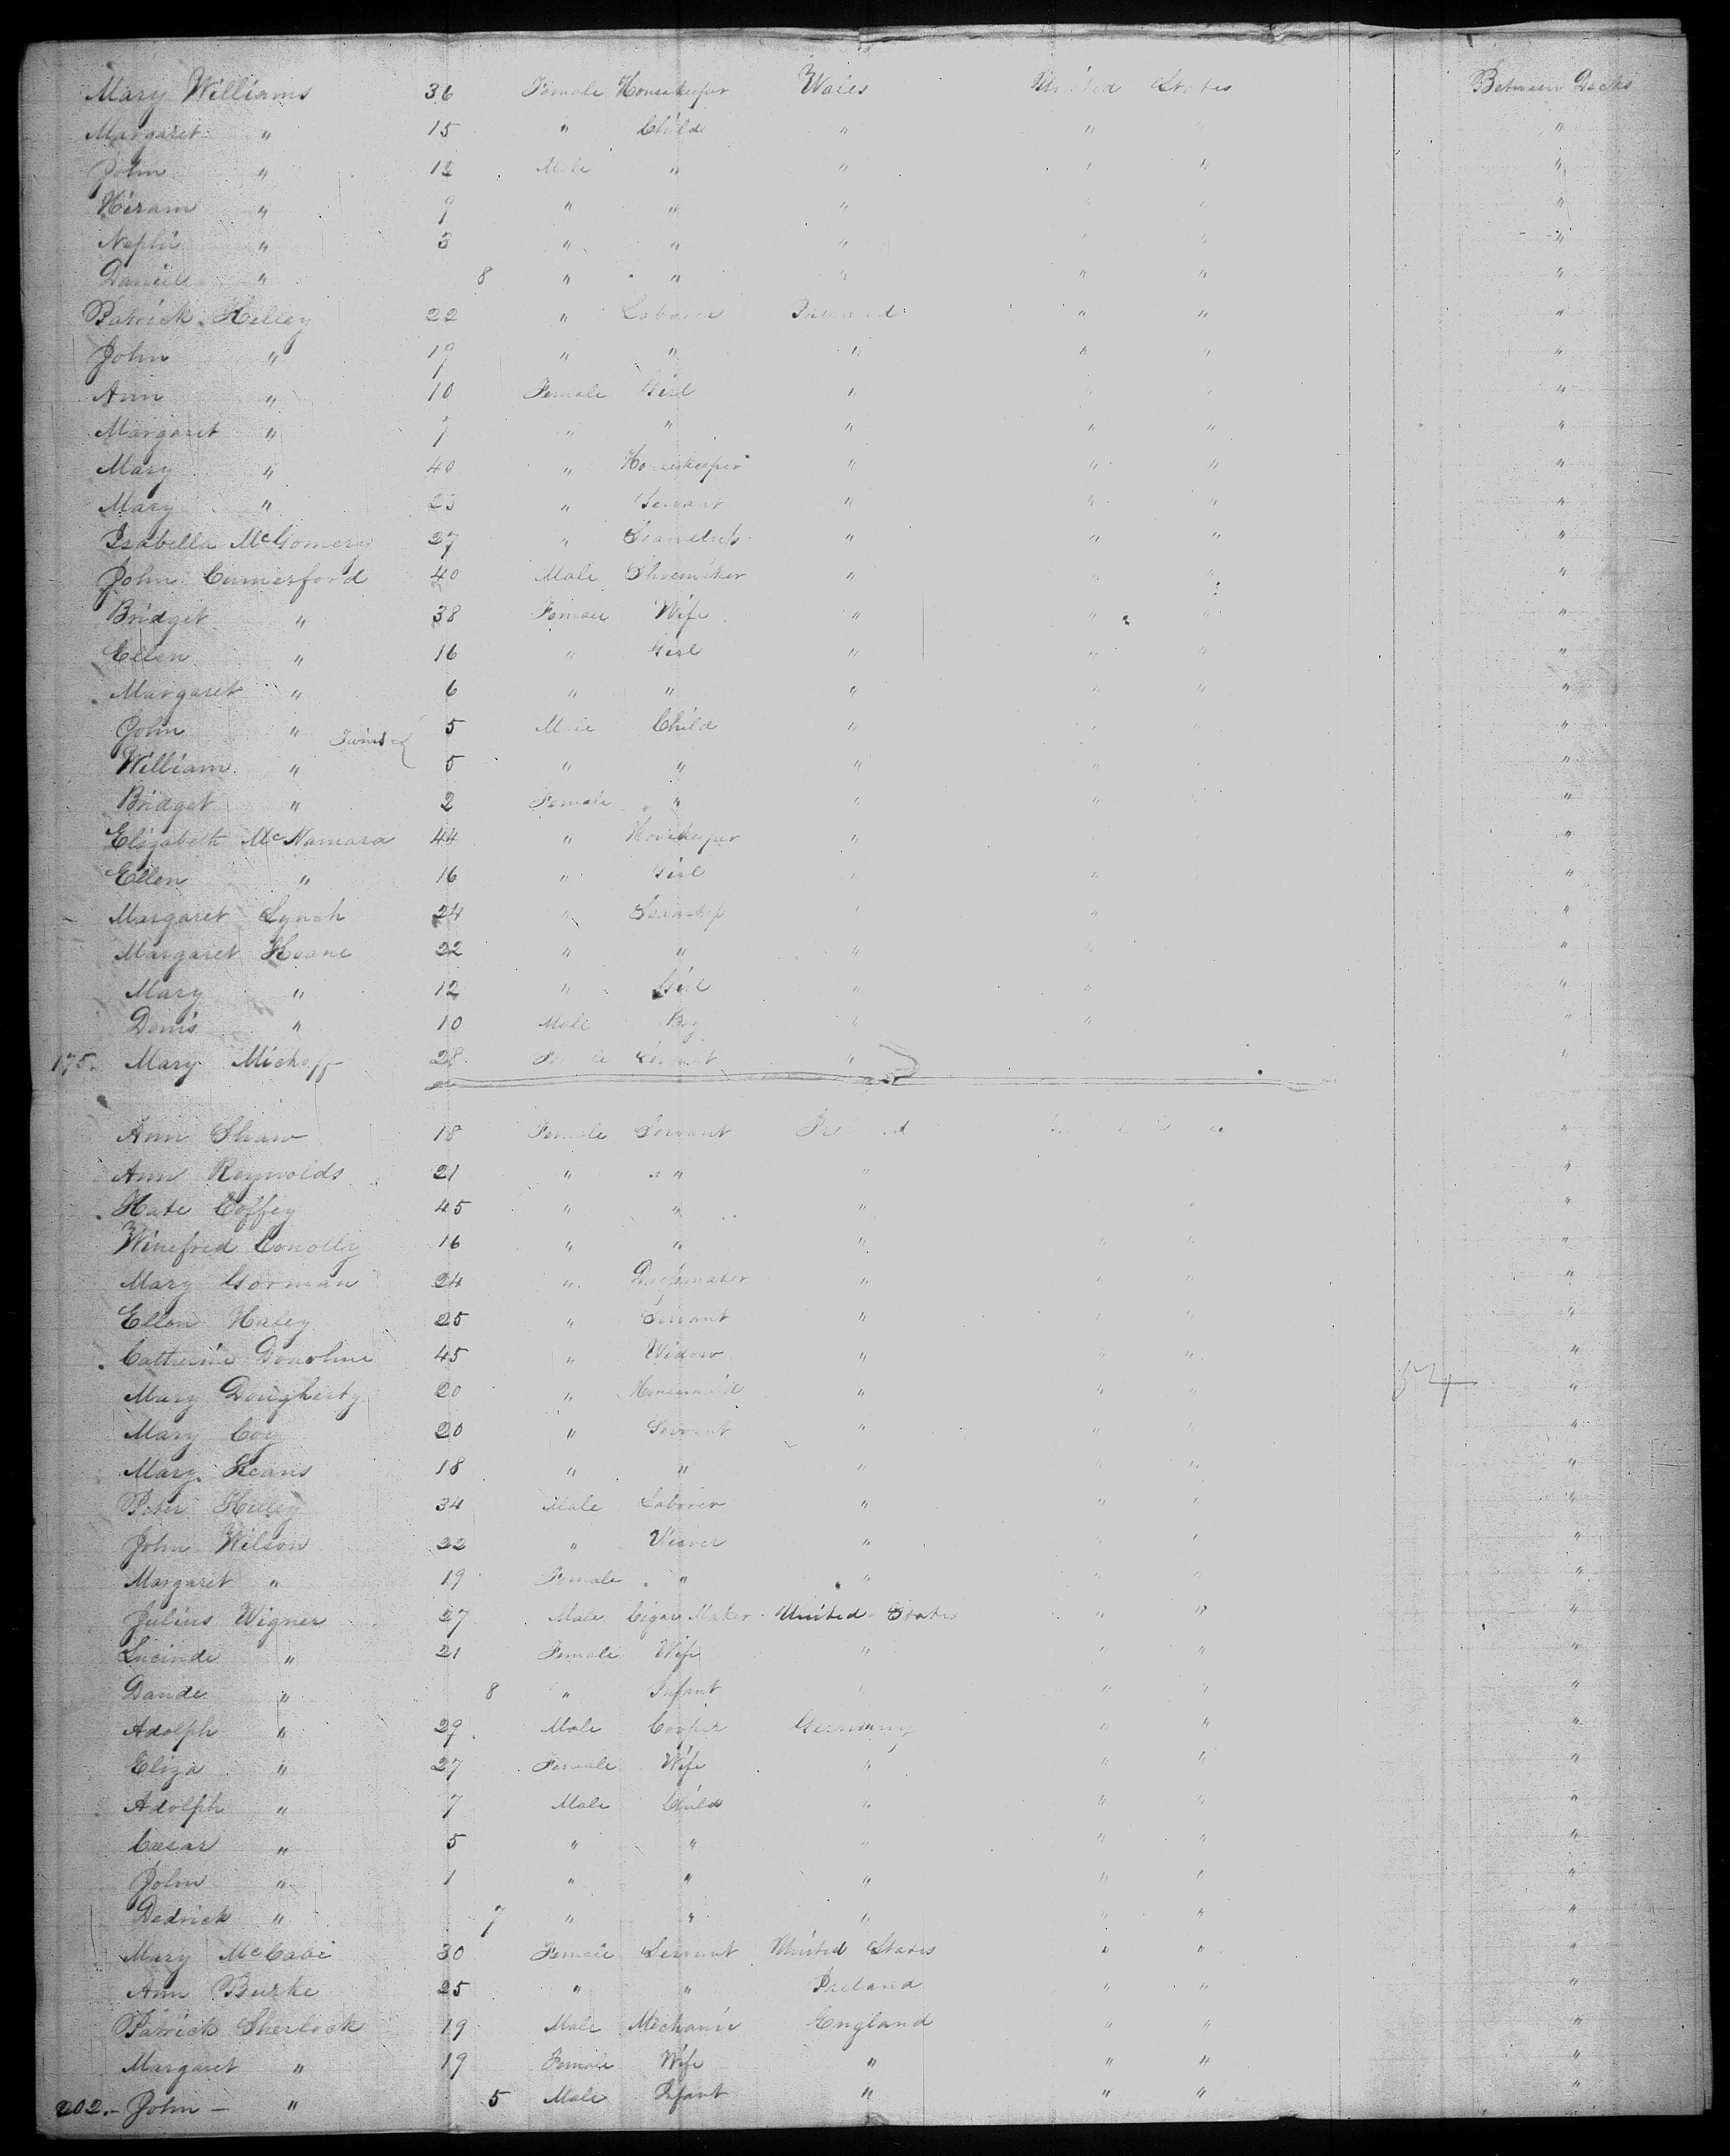 Mary Williams 36 Female Housekeeper Wales United States Between Decks
Margaret " 15 " Childe " " " "
John " 12 Male " " " " "
Hiram " 9 " " " " " "
Nephi " 3 " " " " " "
Daniele " 8 " " " " " "
Patrick Kelley 22 " Laborer Ireland " " "
John " 19 " " " " " "
Ann " 10 Female Girl " " " "
Margaret " 7 " " " " " "
Mary " 40 " Housekeeper " " " "
Mary " 23 " Servant " " " "
Isabella McGomery 27 " " " " "
John Cumerford 40 Male Shoemaker " " " "
Bridget " 38 Female Wife " " " "
Ellen " 16 " Girl " " " "
Margaret " 6 " " " " " "
John " Twins 5 Male Child " " " "
William " 5 " " " " " "
Bridget " 2 Female " " " "
Elizabeth McNamara 44 " Housekeeper " "
Ellen " 16 " Girl " " "
Margaret Lynch 24 " " " "
Margaret Keane 22 " " " " "
Mary " 12 " Girl " " "
Denis " 10 Male Boy " " "
175. Mary 28 Female Servant " "
Ann Shaw 18 Female Servant Ireland "
Ann Reynolds 21 " " " "
Kate Coffey 45 " " " " "
Winefred Conolly 16 " " " " " "
Mary Gorman 24 " Dressmaker " " " "
Ellen Haley 25 " Servant " " " "
Catherine Donohue 45 " Widow " " " "
Mary Dougherty 20 " Housemaid " " " "
Mary Coy 20 " Servant " " " "
Mary Keans 18 " " " " " "
Peter 34 Male Laborer " " " "
John Wilson 22 " Weaver " " " "
Margaret " 19 Female " " " " "
Julius Wigner 27 Male Cigar Maker United States " " "
Lucinde " 21 Female Wife " " " "
Dande " 8 " Infant " " " "
Adolph " 29 Male Cooper Germany " " "
Eliza " 27 Female Wife " " " "
Adolph " 7 Male Child " " " "
Cæsar " 5 " " " " " "
John " 1 " " " " " "
Dedrick " 7 " " " " " "
Mary McCabe 30 Female Servant United States " " "
Ann Burke 25 " " Ireland " " "
Patrick Sherlock 19 Male Mechanic England " " "
Margaret " 19 Female Wife " " " "
202.- John - " 5 Male Infant " " " "